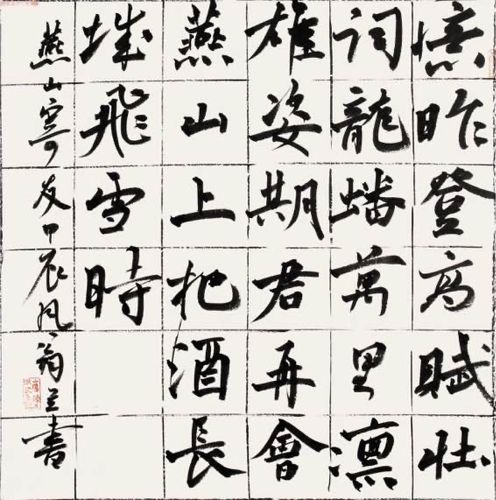 憶昨登高賦壯
詞龍蟠萬里凛
雄姿期君再會
燕山上把酒長
城飛雪時
燕山寄友甲辰翁書